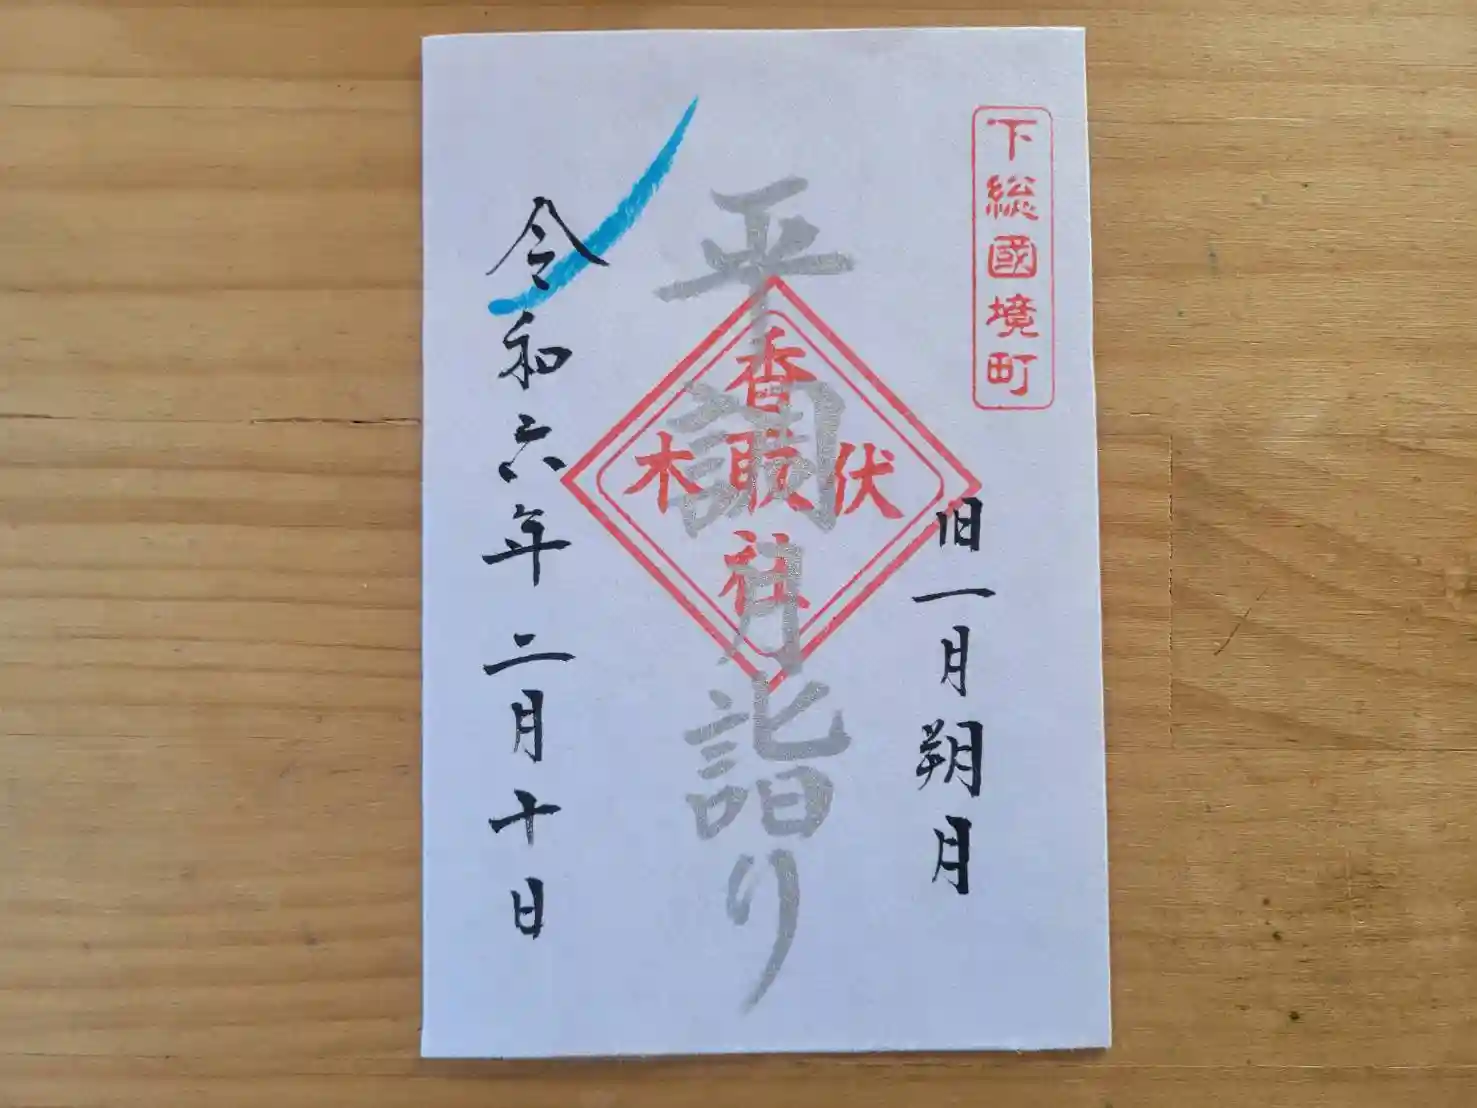 下総國境町
旧一月朔月
平調月詣り
香取社
伏木
令和六年二月十日